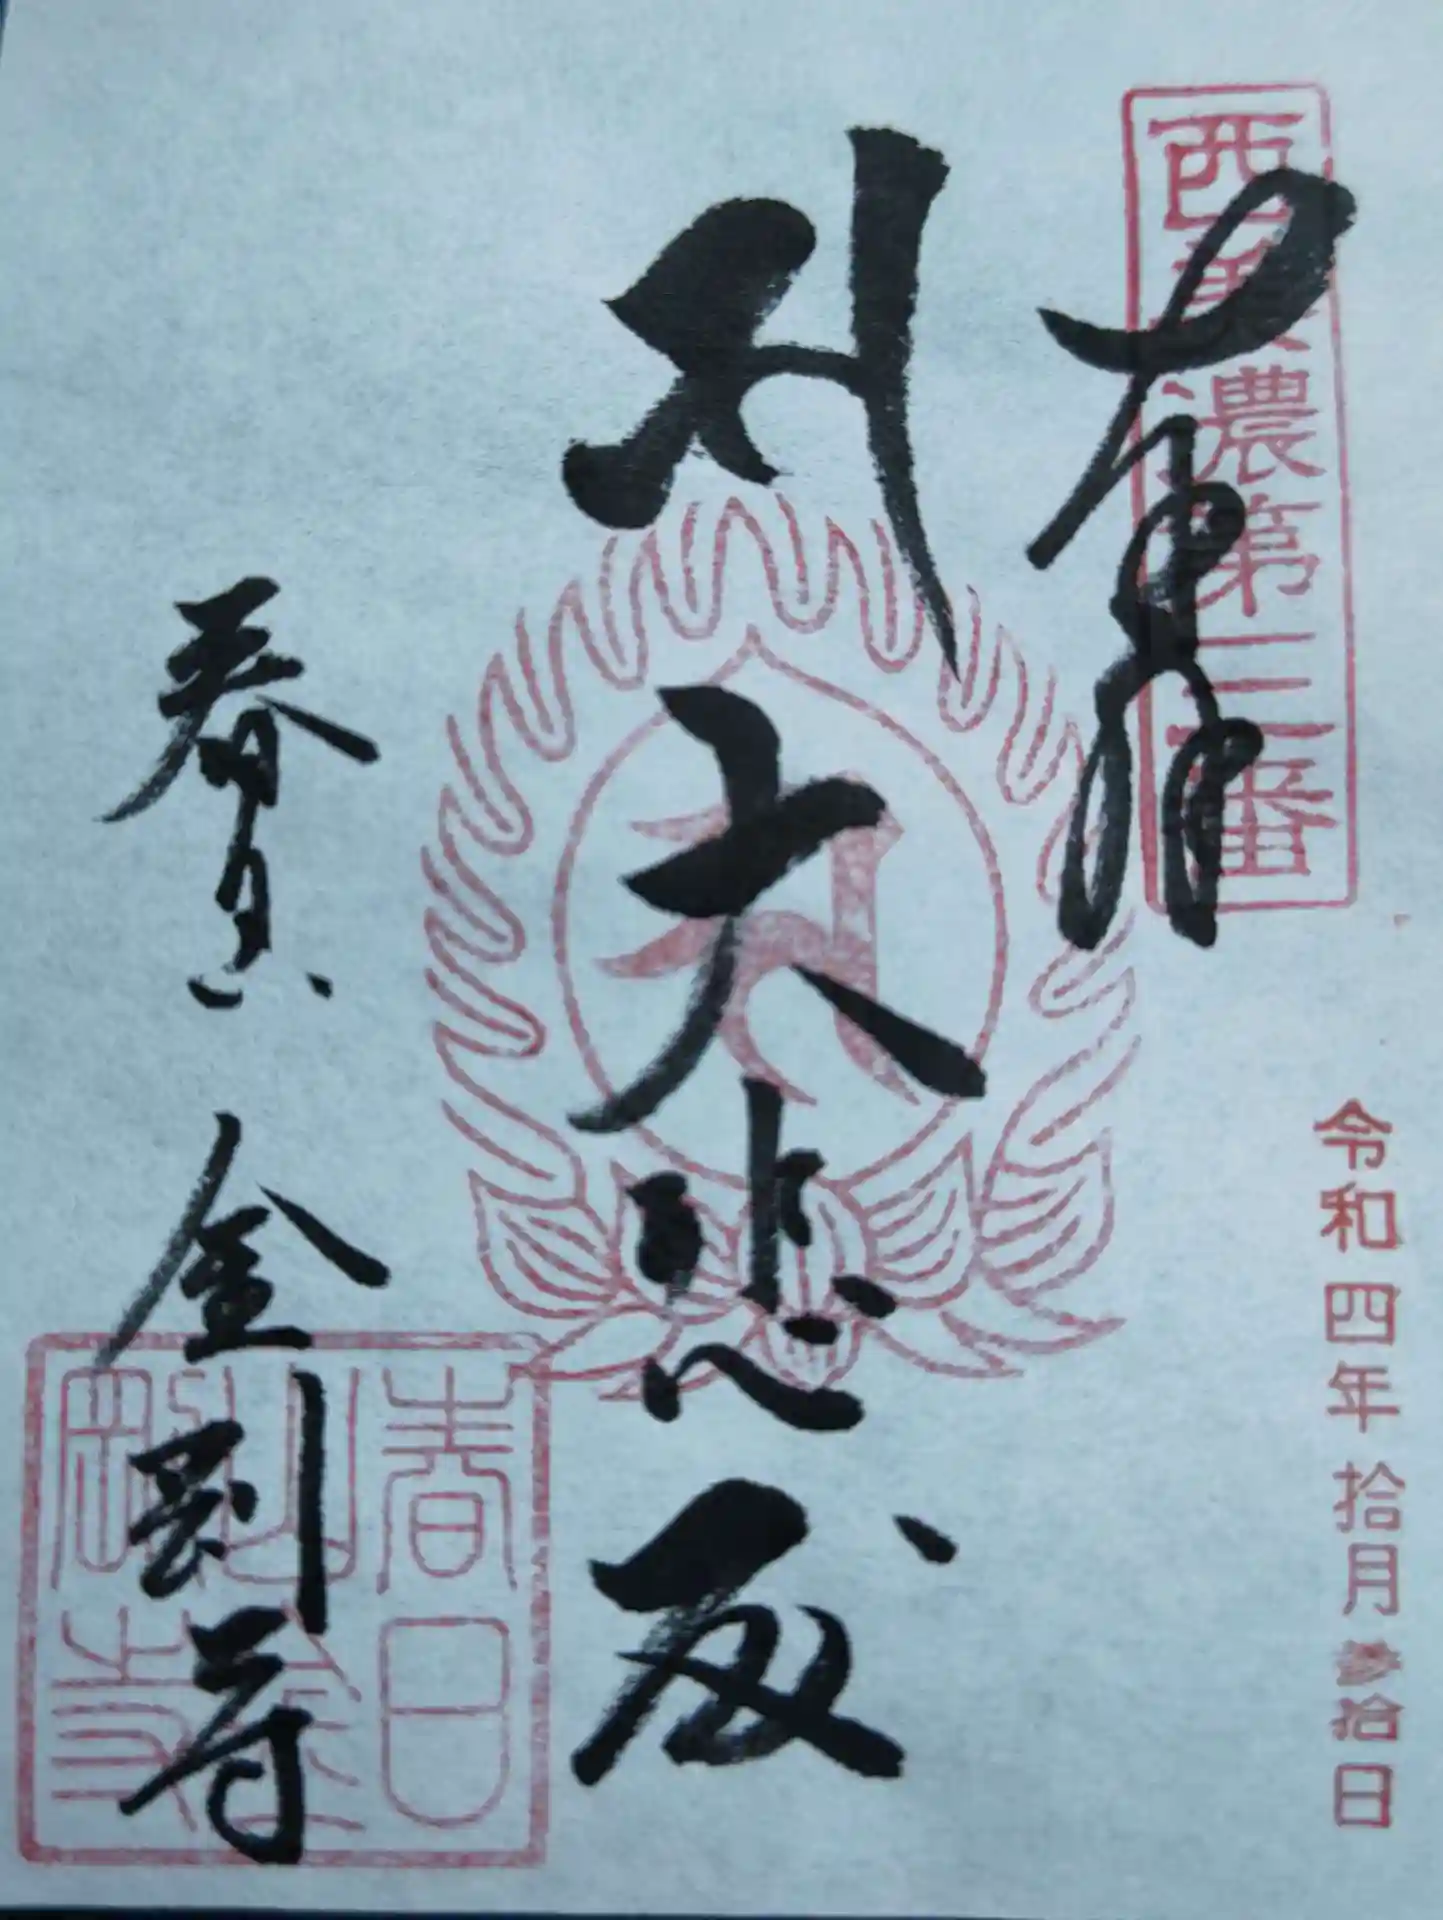 西美濃第三番
奉拝
令和四年拾月参拾日
大悲殿
春日山 金剛寺
春日
山金
剛寺